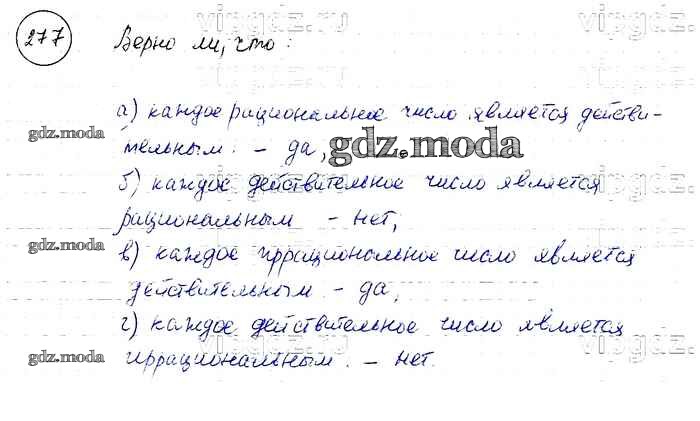 277 Верно ли, что:
а) каждое рациональное число является действи-
тельным. - да,
б) каждое действительное число является
рациональным - нет,
в) каждое иррациональное число является
действительным - да,
г) каждое действительное число является
иррациональным. - нет.
gdz.moda
gdz.moda
gdz.moda
gdz.moda
gdz.moda
vipgdz.
vipgdz.
vipgdz.
vipgdz.